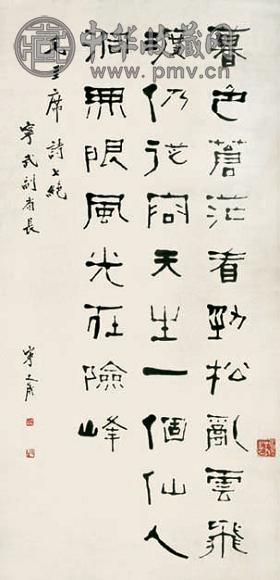 中华收藏网
www.pmv.cn
暮色蒼茫看勁松亂雲飛
渡仍從容天生一個仙人
洞無限風光在險峰
毛主席詩七絕
寧武副省長
寧斧成